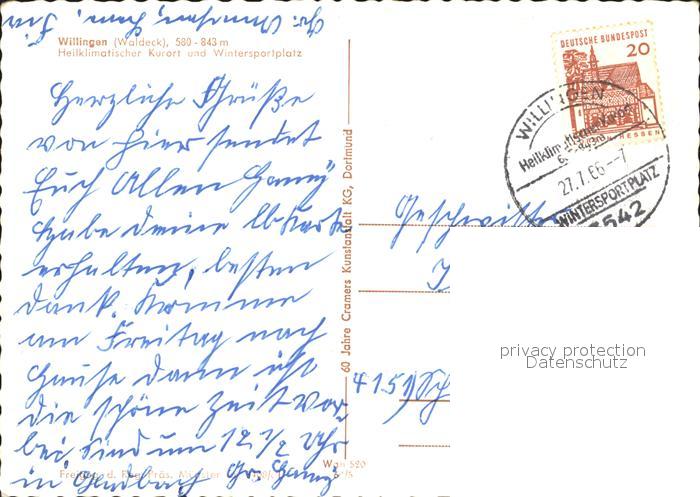 Willingen (Waldeck), 580 - 843 m
Heilklimatischer Kurort und Wintersportplatz
Herzliche Grüße
von hier sendet
Euch Allen Hanny
Habe deine Karte
erhalten, besten
Dank. Komme
am Freitag nach
Hause dann ist
die schöne Zeit vor-
bei sind um 12 1/2 Uhr
in Gr. Hanny
60 Jahre Cramers Kunstanstalt KG, Dortmund
Freigeg. d. Reg. Präs. Münster
Wgn 520
DEUTSCHE BUNDESPOST
20
WILLINGEN
Heilklimatischer Kurort
27.7.66.--7
WINTERSPORTPLATZ
3542
Geschwister
4151 Sch
privacy protection
Datenschutz